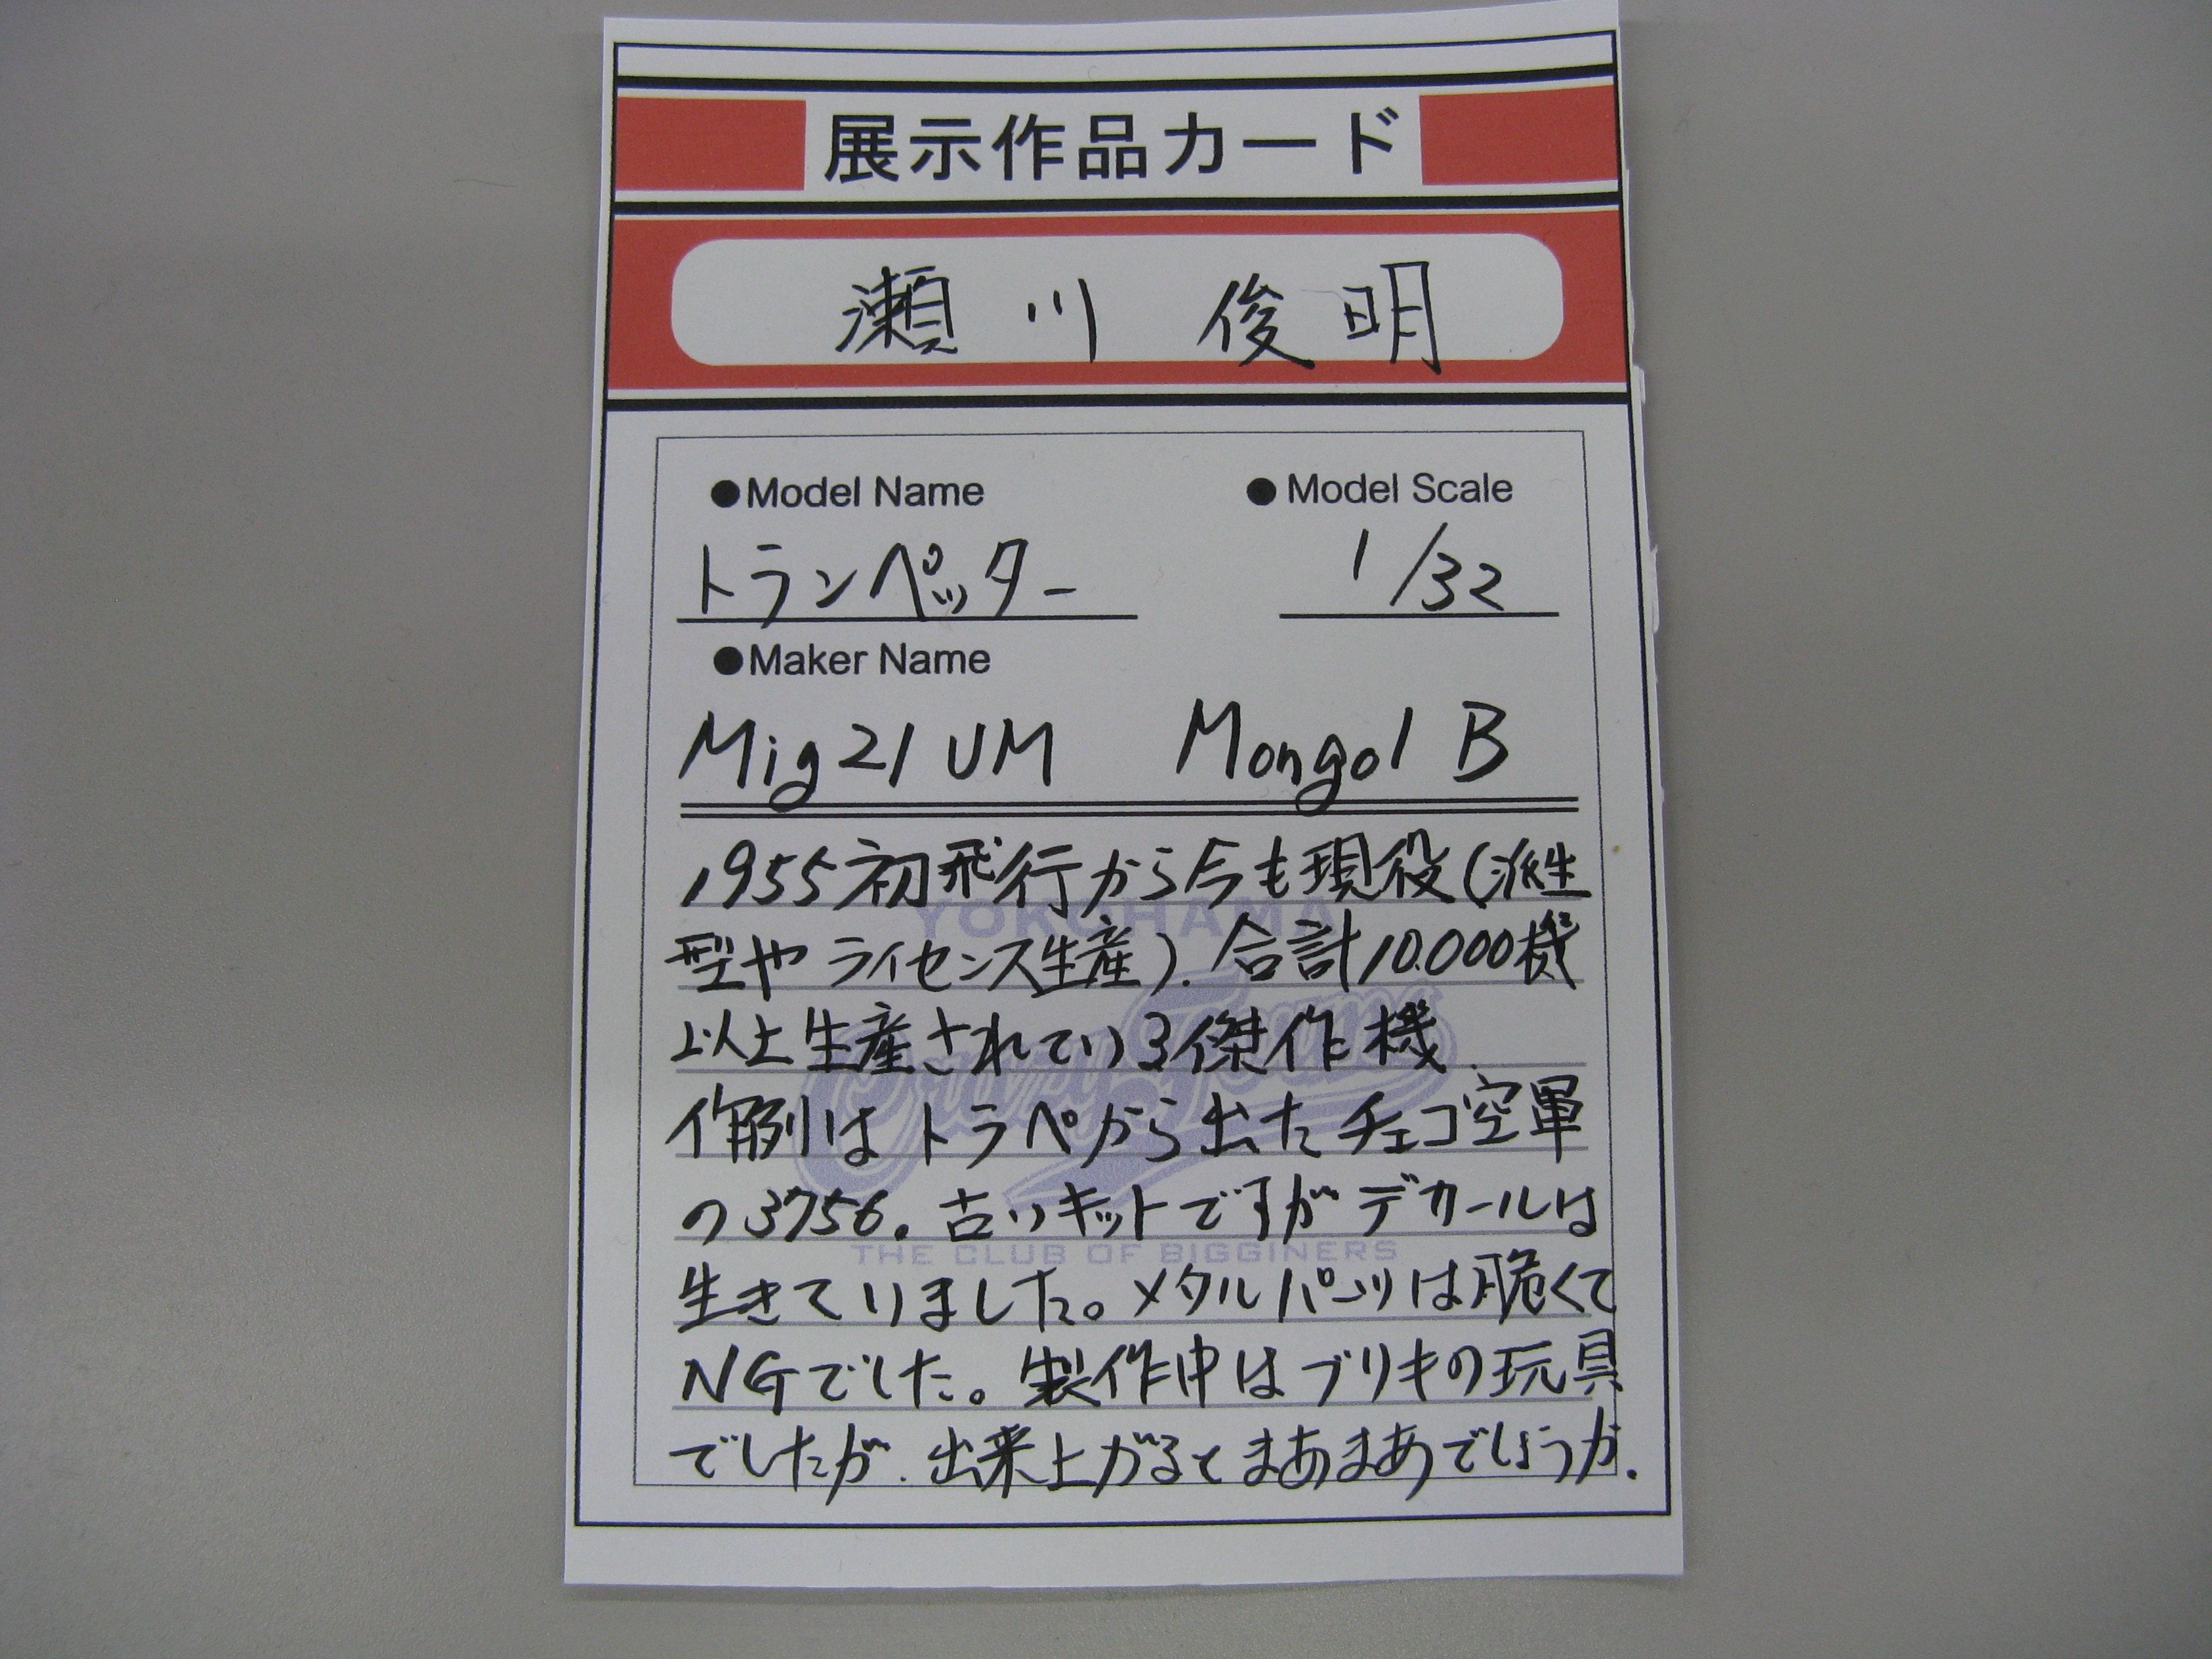 展示作品カード
瀬川 俊明
●Model Name ●Model Scale
トランペッター 1/32
●Maker Name
Mig21UM Mongol B
1955初飛行から今も現役(派生
型やライセンス生産). 合計10.000機
以上生産されている傑作機.
作例はトラペから出たチェコ空軍
の3756。古いキットですがデカールは
生きていました。メタルパーツは脆くて
NGでした。製作中はブリキの玩具
でしたが.出来上がるとまあまあでしょうか.
YOKOHAMA
THE CLUB OF BIGGINERS